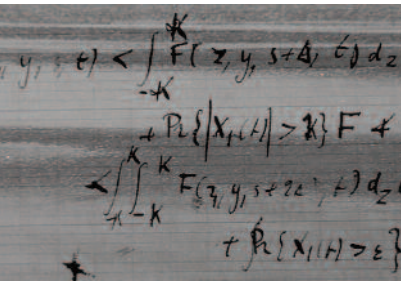 y, s, t) < ∫_{-K}^{K} F(z, y, s+Δ, t) dz
+ Pr{|X₁(t)| > K} F
< ∫∫_{-K}^{K} F(z, y, s+2ε, t) dz
+ Pr{X₁(t) > ε}